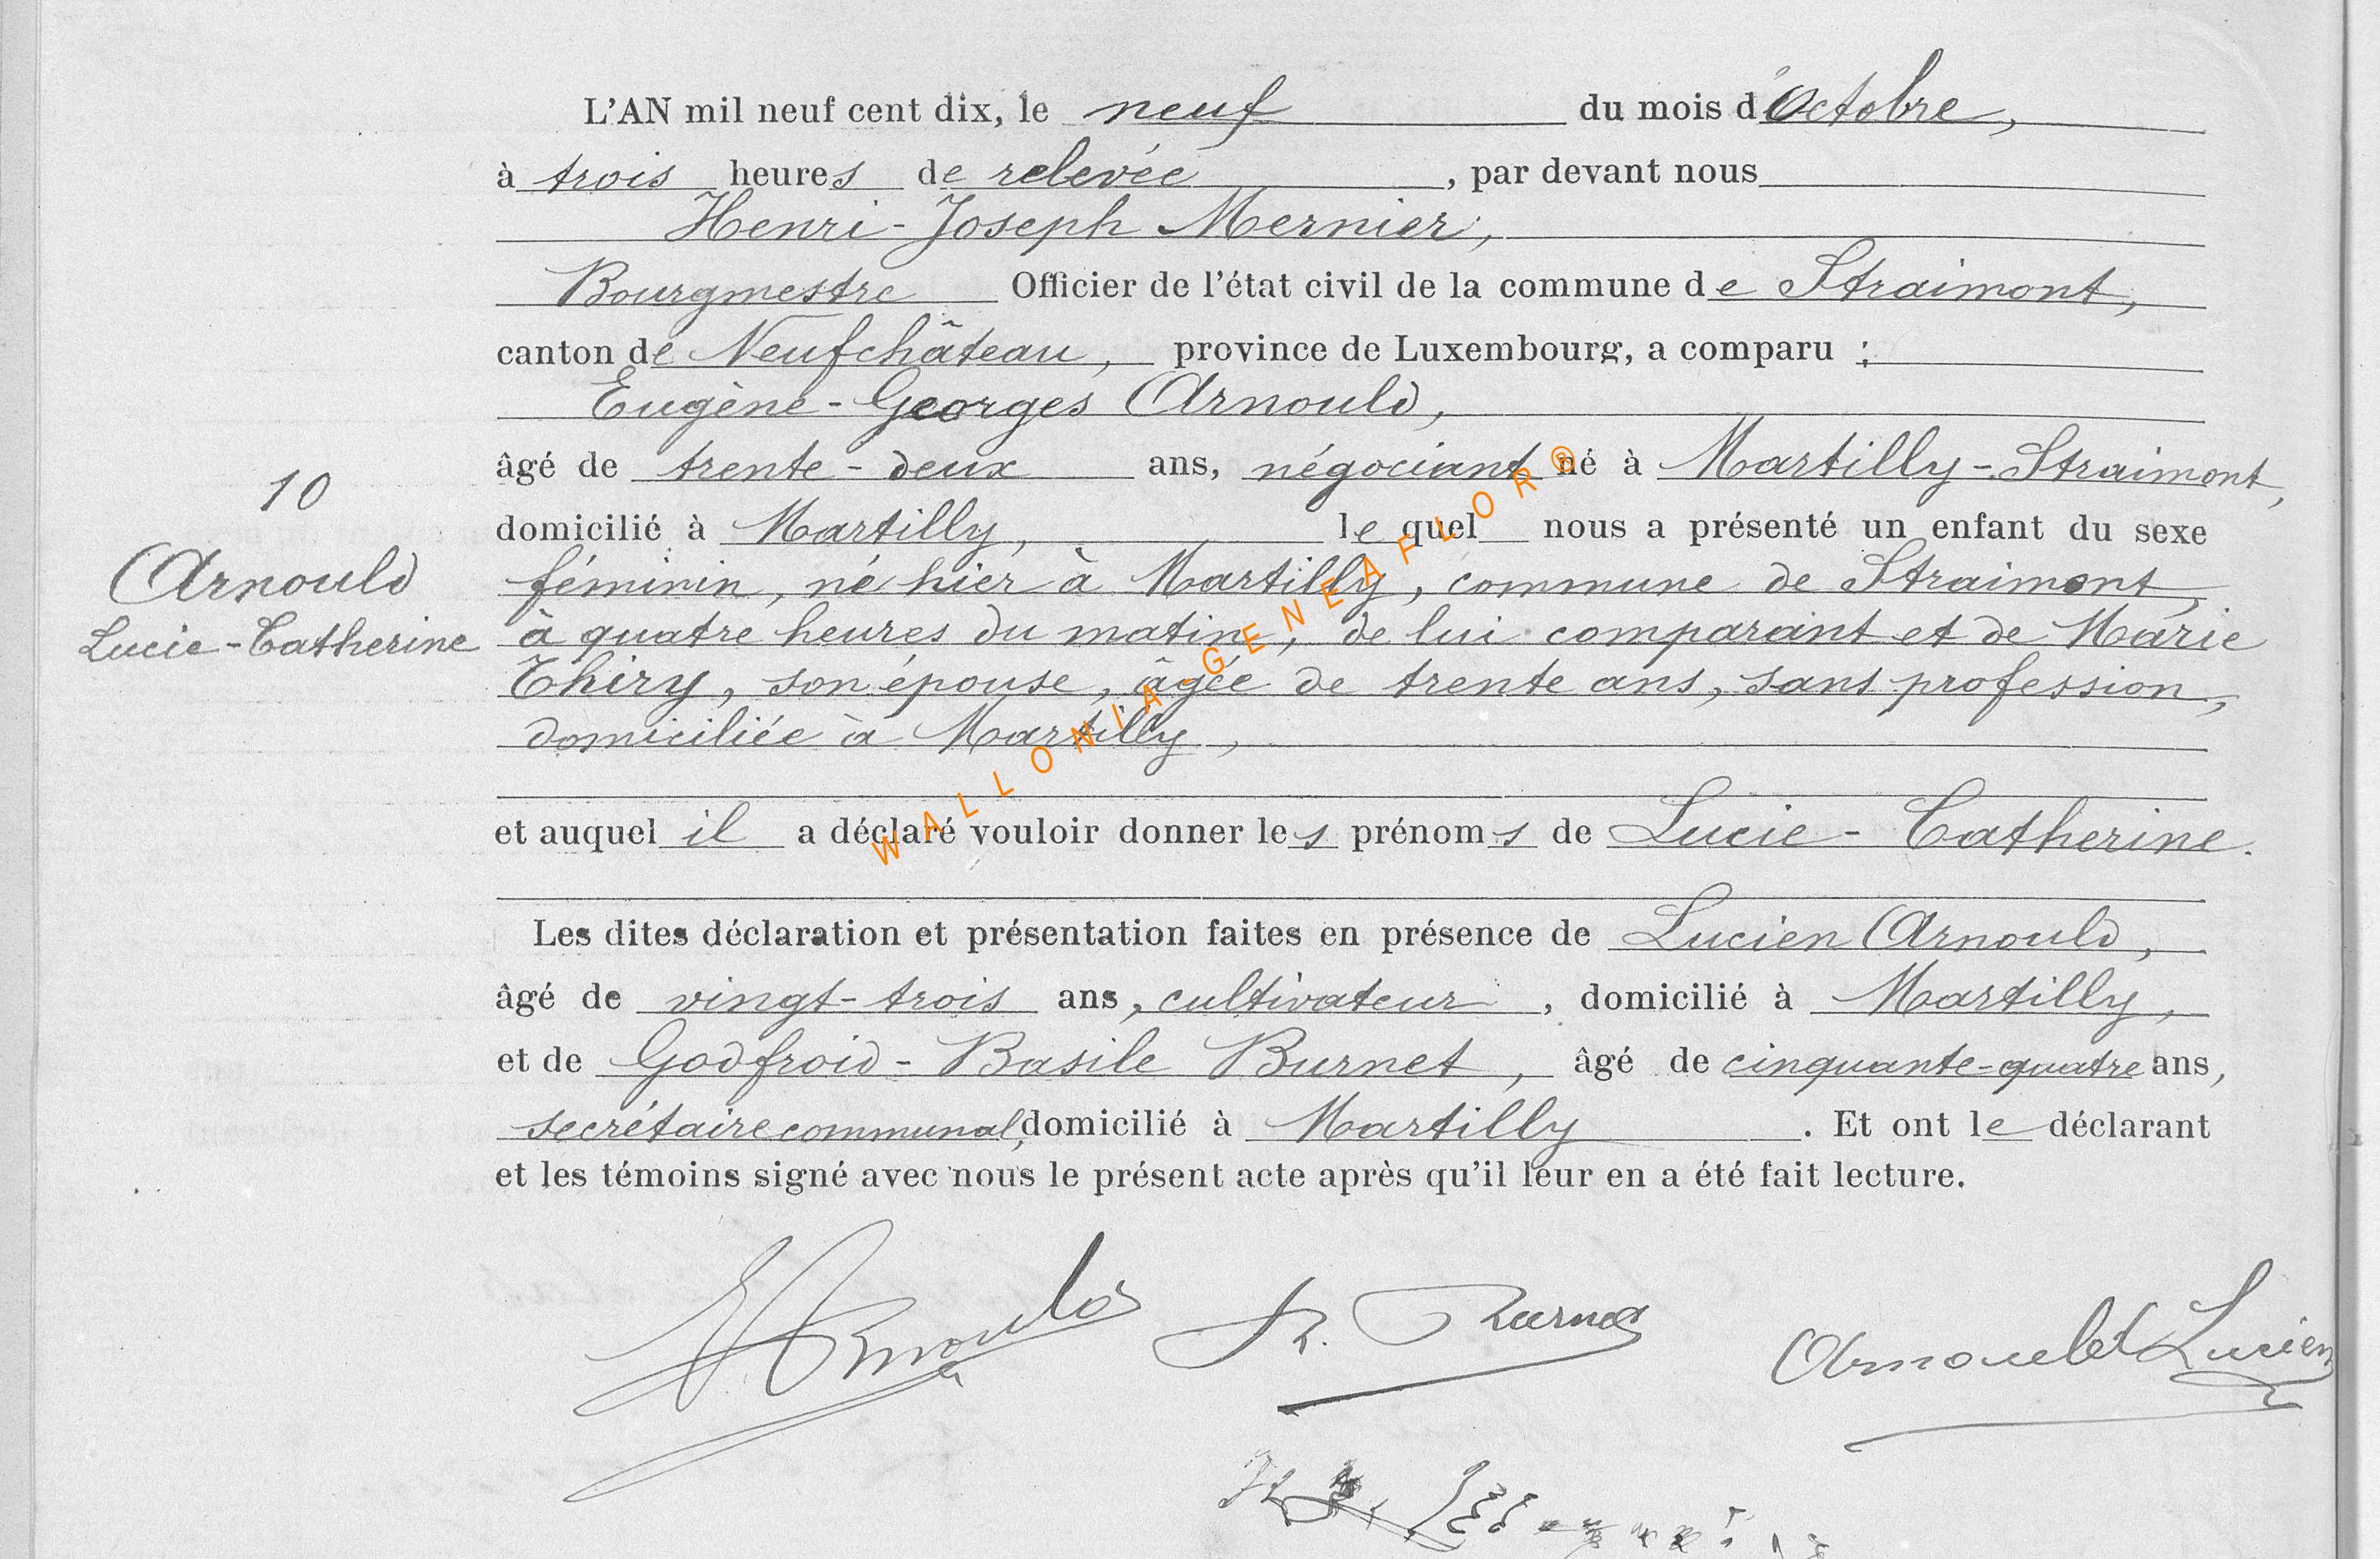 L'AN mil neuf cent dix, le neuf du mois d'Octobre,
à trois heures de relevée, par devant nous
Henri-Joseph Mernier,
Bourgmestre Officier de l'état civil de la commune de Straimont,
canton de Neufchâteau, province de Luxembourg, a comparu :
Eugène-Georges Arnould,
âgé de trente-deux ans, négociant né à Martilly-Straimont,
domicilié à Martilly, lequel nous a présenté un enfant du sexe
féminin, né hier à Martilly, commune de Straimont,
à quatre heures du matin, de lui comparant et de Marie
Thiry, son épouse, âgée de trente ans, sans profession,
domiciliée à Martilly,
et auquel il a déclaré vouloir donner les prénoms de Lucie-Catherine.
Les dites déclaration et présentation faites en présence de Lucien Arnould,
âgé de vingt-trois ans, cultivateur, domicilié à Martilly,
et de Godfroid-Basile Burnet, âgé de cinquante-quatre ans,
secrétaire communal, domicilié à Martilly. Et ont le déclarant
et les témoins signé avec nous le présent acte après qu'il leur en a été fait lecture.
10
Arnould
Lucie-Catherine
WALLONIA-GENEAFLOR®
Arnould Lucien